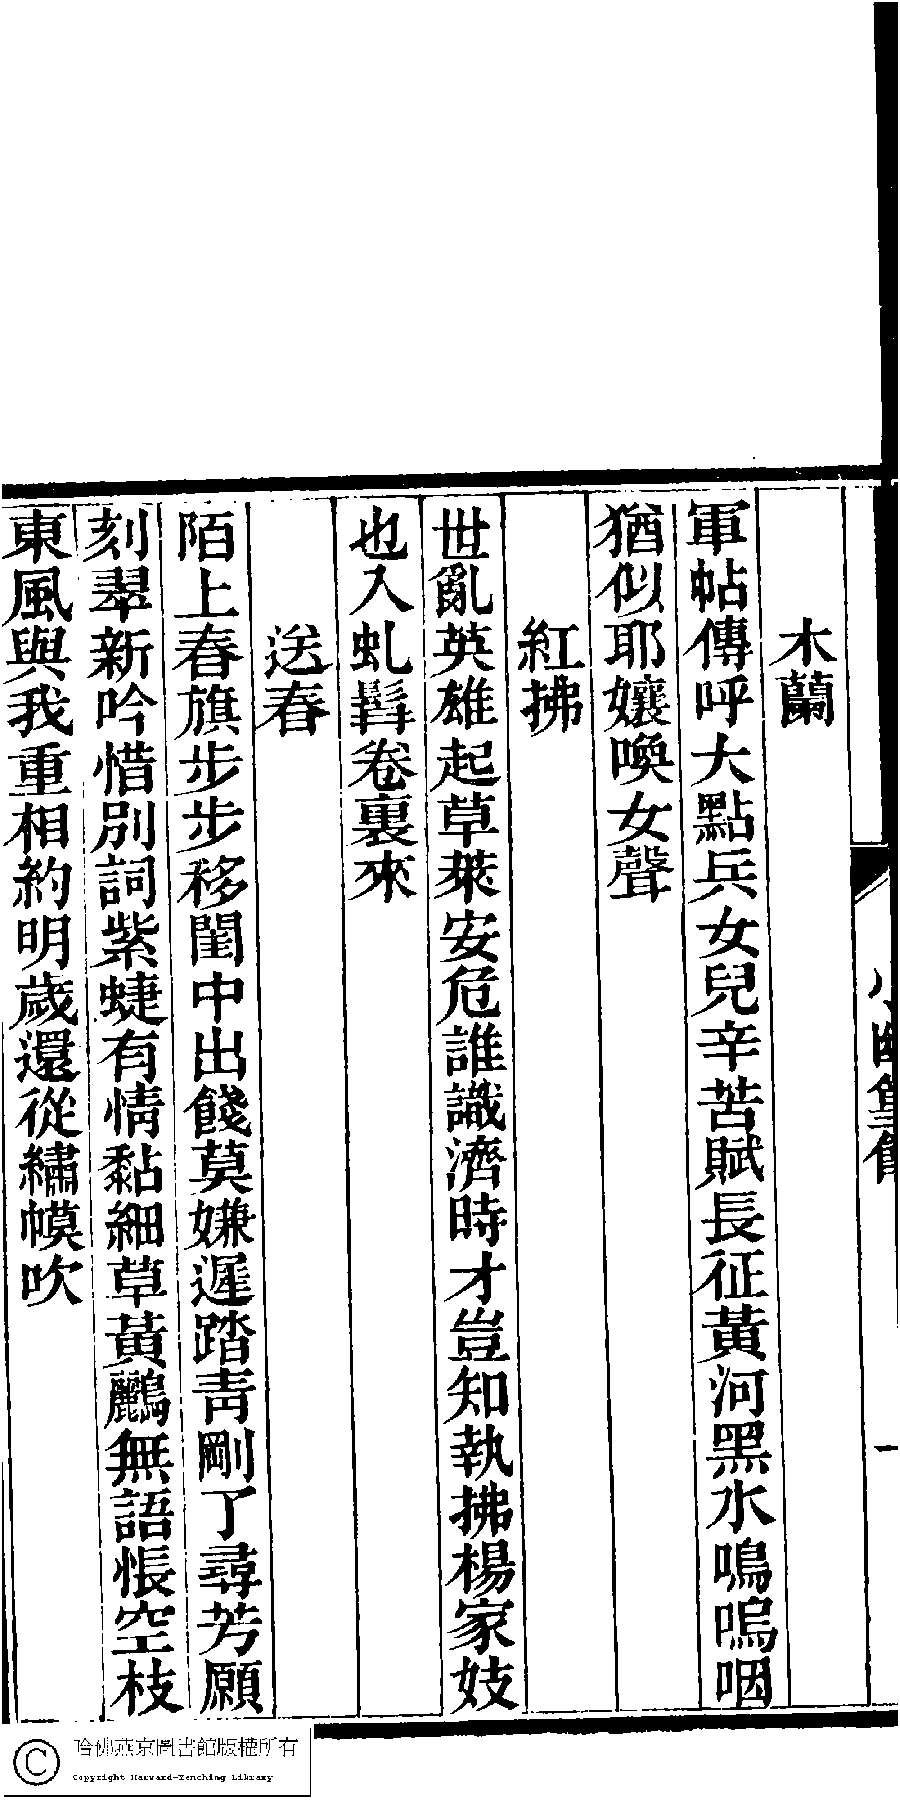 木蘭
軍帖傳呼大點兵女兒辛苦賦長征黃河黑水鳴嗚咽
猶似耶孃喚女聲
紅拂
世亂英雄起草萊安危誰識濟時才豈知執拂楊家妓
也入虬髯卷裏來
送春
陌上春旗步步移閨中出餞莫嫌遲踏青剛了尋芳願
刻翠新吟惜別詞紫蜨有情黏細草黃鸝無語悵空枝
東風與我重相約明歲還從繡幙吹
哈佛燕京圖書館版權所有
Copyright Harvard-Yenching Library